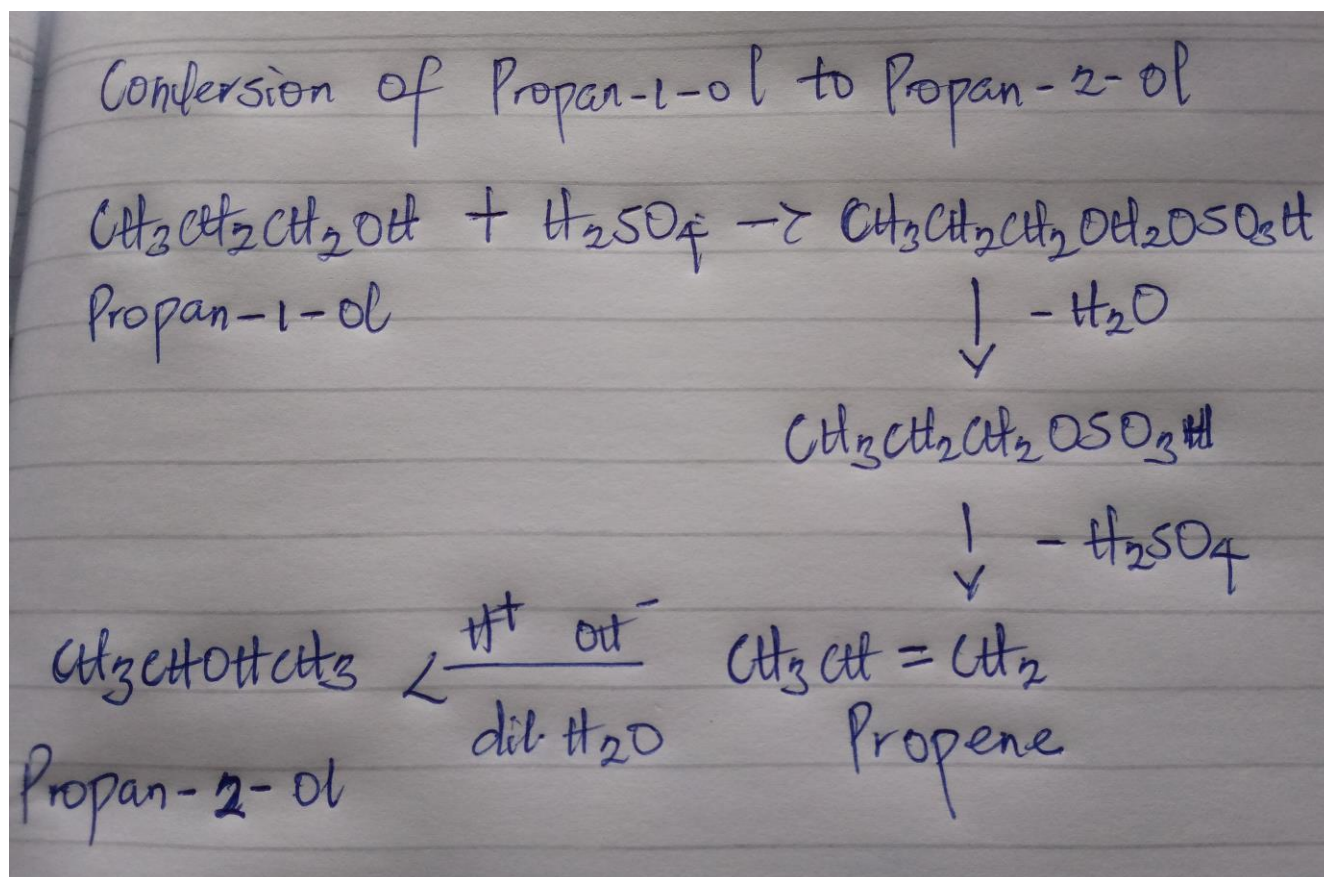 Conversion of Propan-1-ol to Propan-2-ol
CH₃CH₂CH₂OH + H₂SO₄ → CH₃CH₂CH₂OH₂OSO₃H
Propan-1-ol
↓ - H₂O
CH₃CH₂CH₂OSO₃H
↓ - H₂SO₄
H⁺ OH⁻
CH₃CHOHCH₃ ← CH₃CH = CH₂
dil. H₂O
Propene
Propan-2-ol